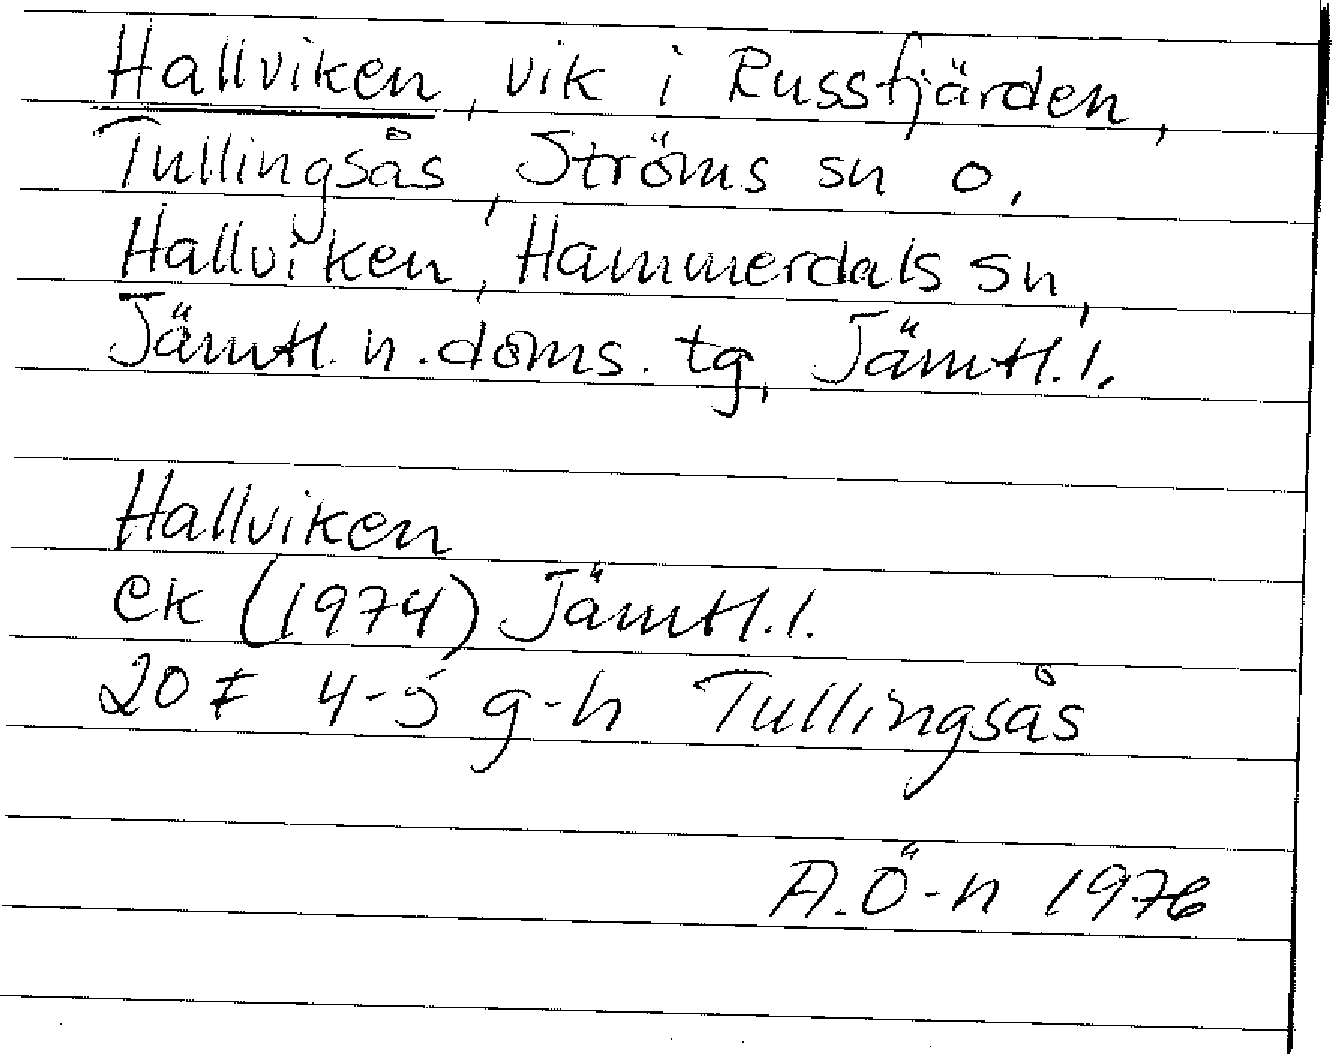 Hallviken, vik i Russfjärden,
Tullingsås, Ströms sn o.
Hallviken, Hammerdals sn,
Jämtl. n. doms. tg, Jämtl. l.
Hallviken
ek (1974) Jämtl. l.
20 F 4-5 g-h Tullingsås
A.Ö-n 1976